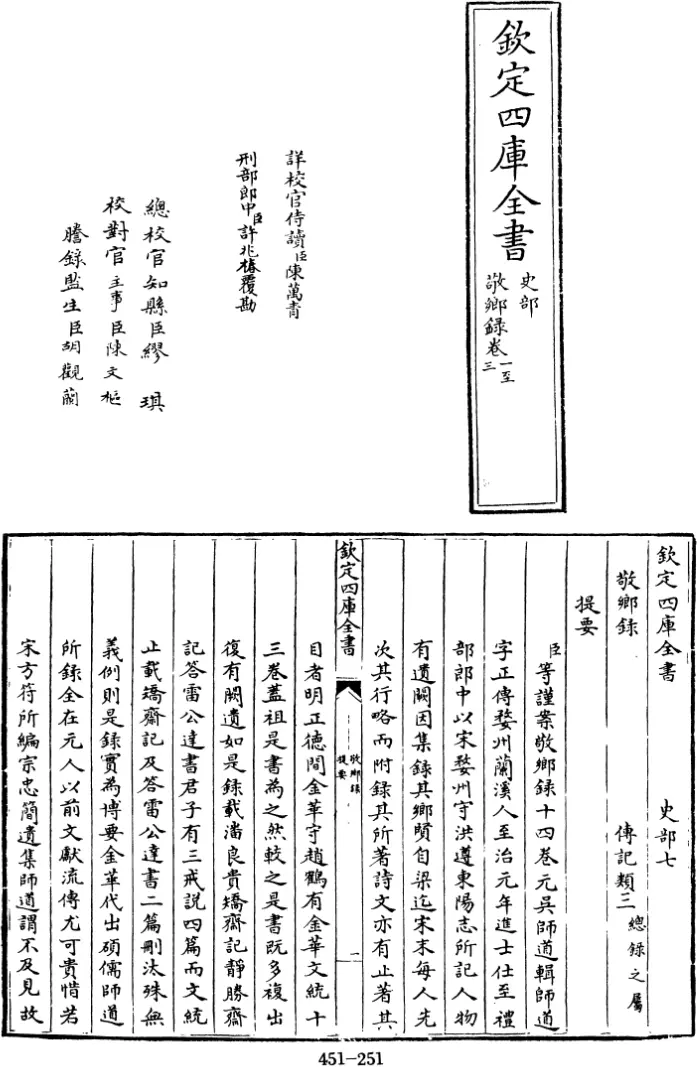 欽定四庫全書
史部
敬鄉錄卷一至三
詳校官侍讀臣陳萬青
刑部郎中臣許兆椿覆勘
總校官知縣臣繆琪
校對官主事臣陳文樞
謄錄監生臣胡觀蘭
欽定四庫全書 史部七
敬鄉錄 傳記類三總錄之屬
提要
臣等謹案敬鄉錄十四卷元吳師道輯師道
字正傳婺州蘭溪人至治元年進士仕至禮
部郎中以宋婺州守洪遵東陽志所記人物
有遺闕因集錄其鄉賢自梁迄宋末每人先
次其行略而附錄其所著詩文亦有止著其
欽定四庫全書
敬鄉錄
提要
一
目者明正德間金華守趙鶴有金華文統十
三卷蓋祖是書為之然較之是書既多複出
復有闕遺如是錄載潘良貴矯齋記靜勝齋
記答雷公達書君子有三戒說四篇而文統
止載矯齋記及答雷公達書二篇刪汰殊無
義例則是錄實為博要金華代出碩儒師道
所錄全在元人以前文獻流傳尤可貴惜若
宋方符所編宗忠簡遺集師道謂不及見故
451-251